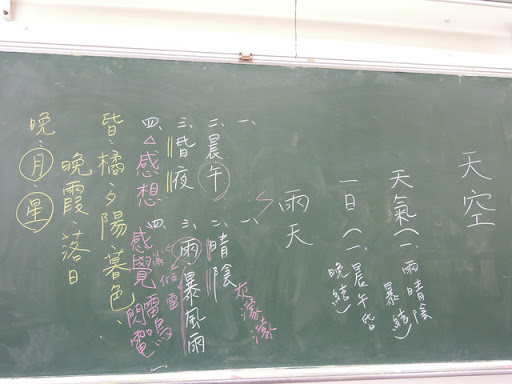 天空
天氣(一、雨晴陰
暴結)
一日(一、晨午昏
晚結)
雨天
一、
一、灰濛濛
二、晨午
二、晴陰
三、昏夜
三、雨、暴風雨
四、感想
四、感覺雷鳴
閃電
昏:橘夕陽暮色、
晚霞落日
晚:月、星